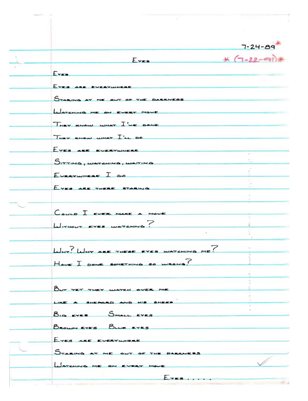 7-24-89*
Eyes * (7-22-89)*
Eyes
Eyes are everywhere
Staring at me out of the darkness
Watching me on every move
They know what I've done
They know what I'll do
Eyes are everywhere
Sitting, watching, waiting
Everywhere I go
Eyes are there staring
Could I ever make a move
Without eyes watching?
Why? Why are these eyes watching me?
Have I done something so wrong?
But yet they watch over me
like a shepard and his sheep
Big eyes Small eyes
Brown eyes Blue eyes
Eyes are everywhere
Staring at me out of the darkness
Watching me on every move
Eyes.....